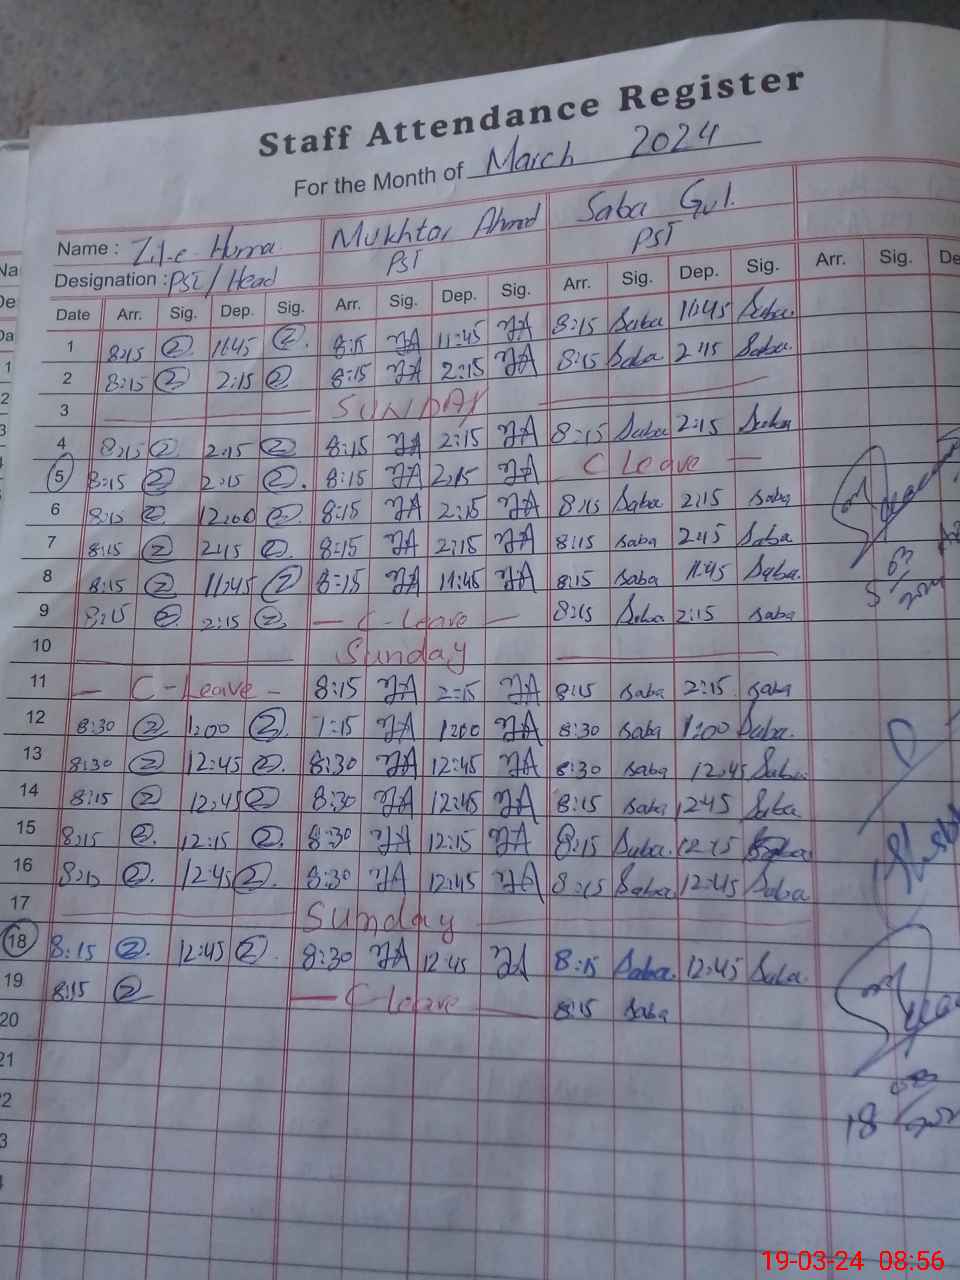 Staff Attendance Register
For the Month of March 2024
Name : Zil-e-Huma Mukhtar Ahmd Saba Gul.
Designation : PST/Head PST PST
Date Arr. Sig. Dep. Sig. Arr. Sig. Dep. Sig. Arr. Sig. Dep. Sig. Arr. Sig. De
1 8:15 11:45 8:15 11:45 8:15 Saba 11:45 Saba.
2 8:15 2:15 8:15 2:15 8:15 Saba 2:15 Saba.
3 SUNDAY
4 8:15 2:15 8:15 2:15 8:15 Saba 2:15 Saba
5 8:15 2:15 8:15 2:15 C Leave
6 8:15 12:00 8:15 2:15 8:15 Saba 2:15 Saba
7 8:15 2:15 8:15 2:15 8:15 Saba 2:15 Saba
8 8:15 11:45 8:15 11:45 8:15 Saba 11:45 Saba.
9 8:15 2:15 C-Leave 8:15 Saba 2:15 Saba
10 Sunday
11 C-Leave 8:15 2:15 8:15 Saba 2:15 Saba
12 8:30 1:00 7:15 1:00 8:30 Saba 1:00 Saba.
13 8:30 12:45 8:30 12:45 8:30 Saba 12:45 Saba
14 8:15 12:45 8:30 12:45 8:15 Saba 12:45 Saba
15 8:15 12:15 8:30 12:15 8:15 Saba. 12:15 Saba
16 8:15 12:45 8:30 12:45 8:15 Saba 12:45 Saba
17 Sunday
18 8:15 12:45 8:30 12:45 8:15 Saba. 12:45 Saba.
19 8:15 C-leave 8:15 Saba
20
21
19-03-24 08:56